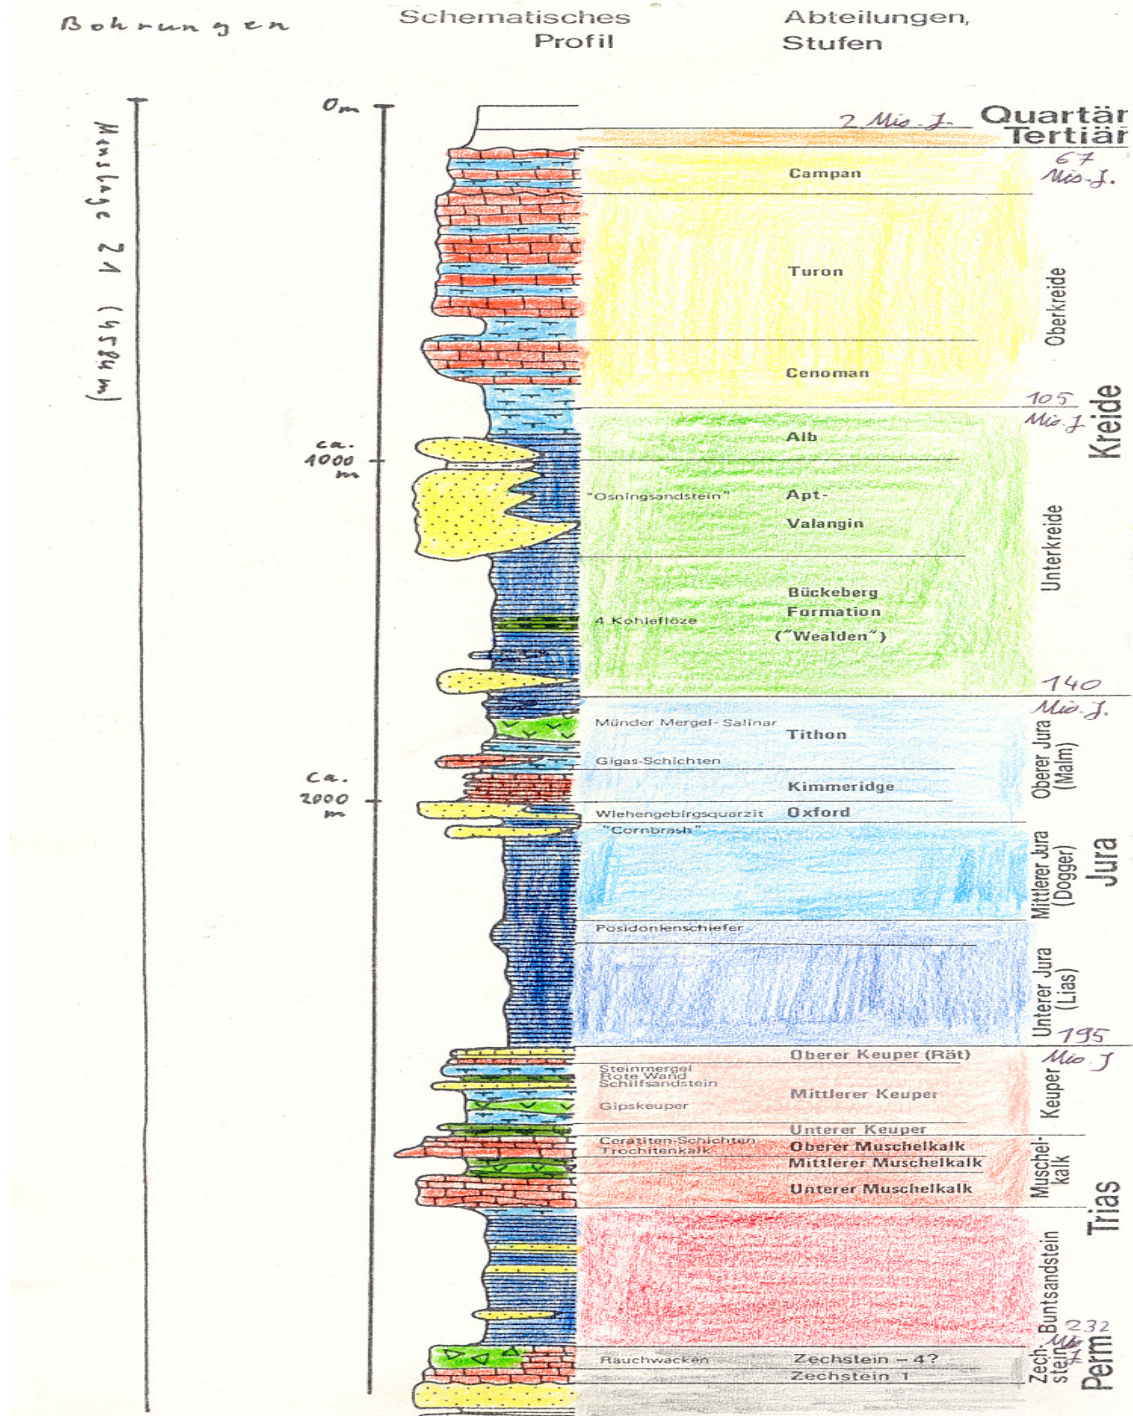 Bohrungen
Schematisches
Profil
Abteilungen,
Stufen
Menslage 21 (4584m)
0m
ca.
1000
m
ca.
2000
m
2 Mio. J.
Quartär
Tertiär
67
Mio. J.
Campan
Turon
Cenoman
Oberkreide
105
Mio. J
Kreide
Alb
"Osningsandstein"
Apt-
Valangin
Unterkreide
Bückeberg
Formation
("Wealden")
4 Kohleflöze
140
Mio. J.
Münder Mergel-Salinar
Tithon
Gigas-Schichten
Kimmeridge
Wiehengebirgsquarzit
Oxford
Oberer Jura
(Malm)
"Cornbrash"
Mittlerer Jura
(Dogger)
Jura
Posidonienschiefer
Unterer Jura
(Lias)
195
Mio. J
Oberer Keuper (Rät)
Steinmergel
Rote Wand
Schilfsandstein
Mittlerer Keuper
Gipskeuper
Unterer Keuper
Keuper
Ceratiten-Schichten
Trochitenkalk
Oberer Muschelkalk
Mittlerer Muschelkalk
Unterer Muschelkalk
Muschel-
kalk
Trias
Buntsandstein
232
Mio.
J
Rauchwacken
Zechstein – 4?
Zechstein 1
Zech-
stein
Perm